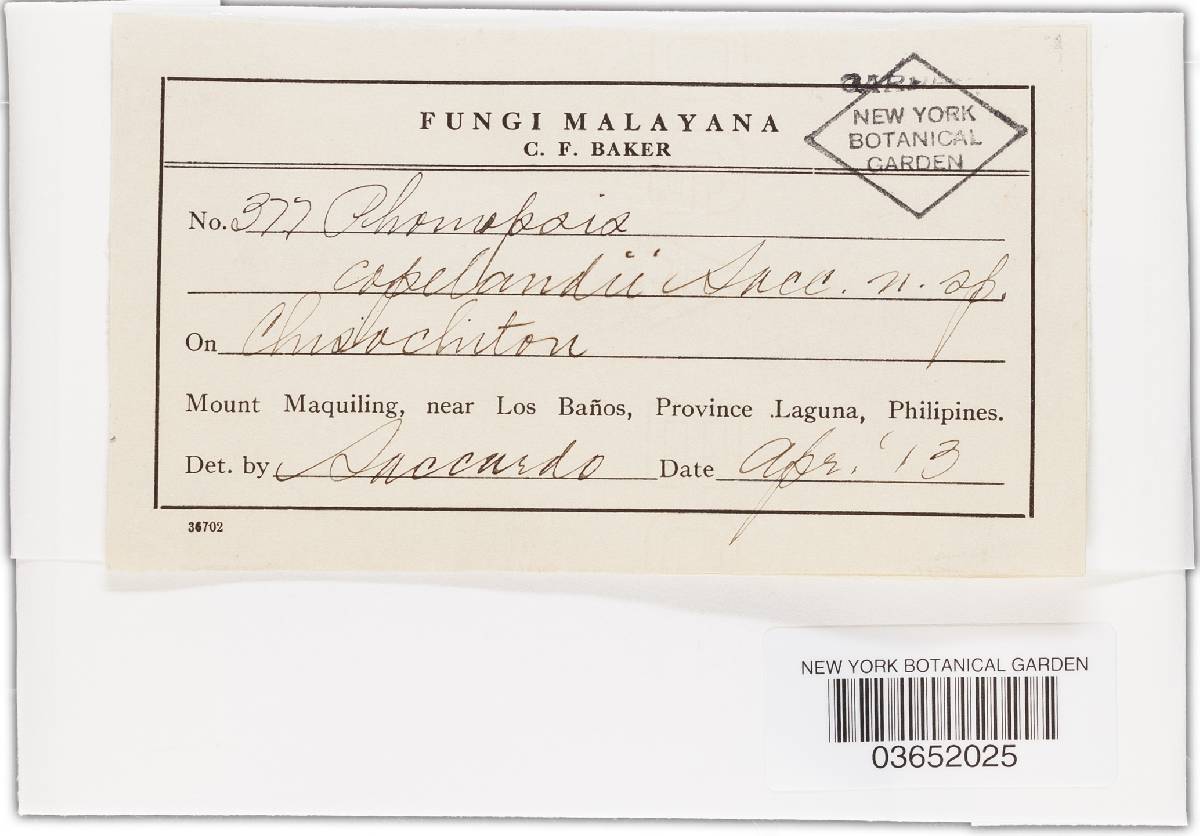 FUNGI MALAYANA
C. F. BAKER
NEW YORK
BOTANICAL
GARDEN
No. 377 Phomopsis
copelandii Sacc. n. sp.
On Chisochiton
Mount Maquiling, near Los Baños, Province Laguna, Philipines.
Det. by Saccardo Date Apr. '13
36702
NEW YORK BOTANICAL GARDEN
03652025